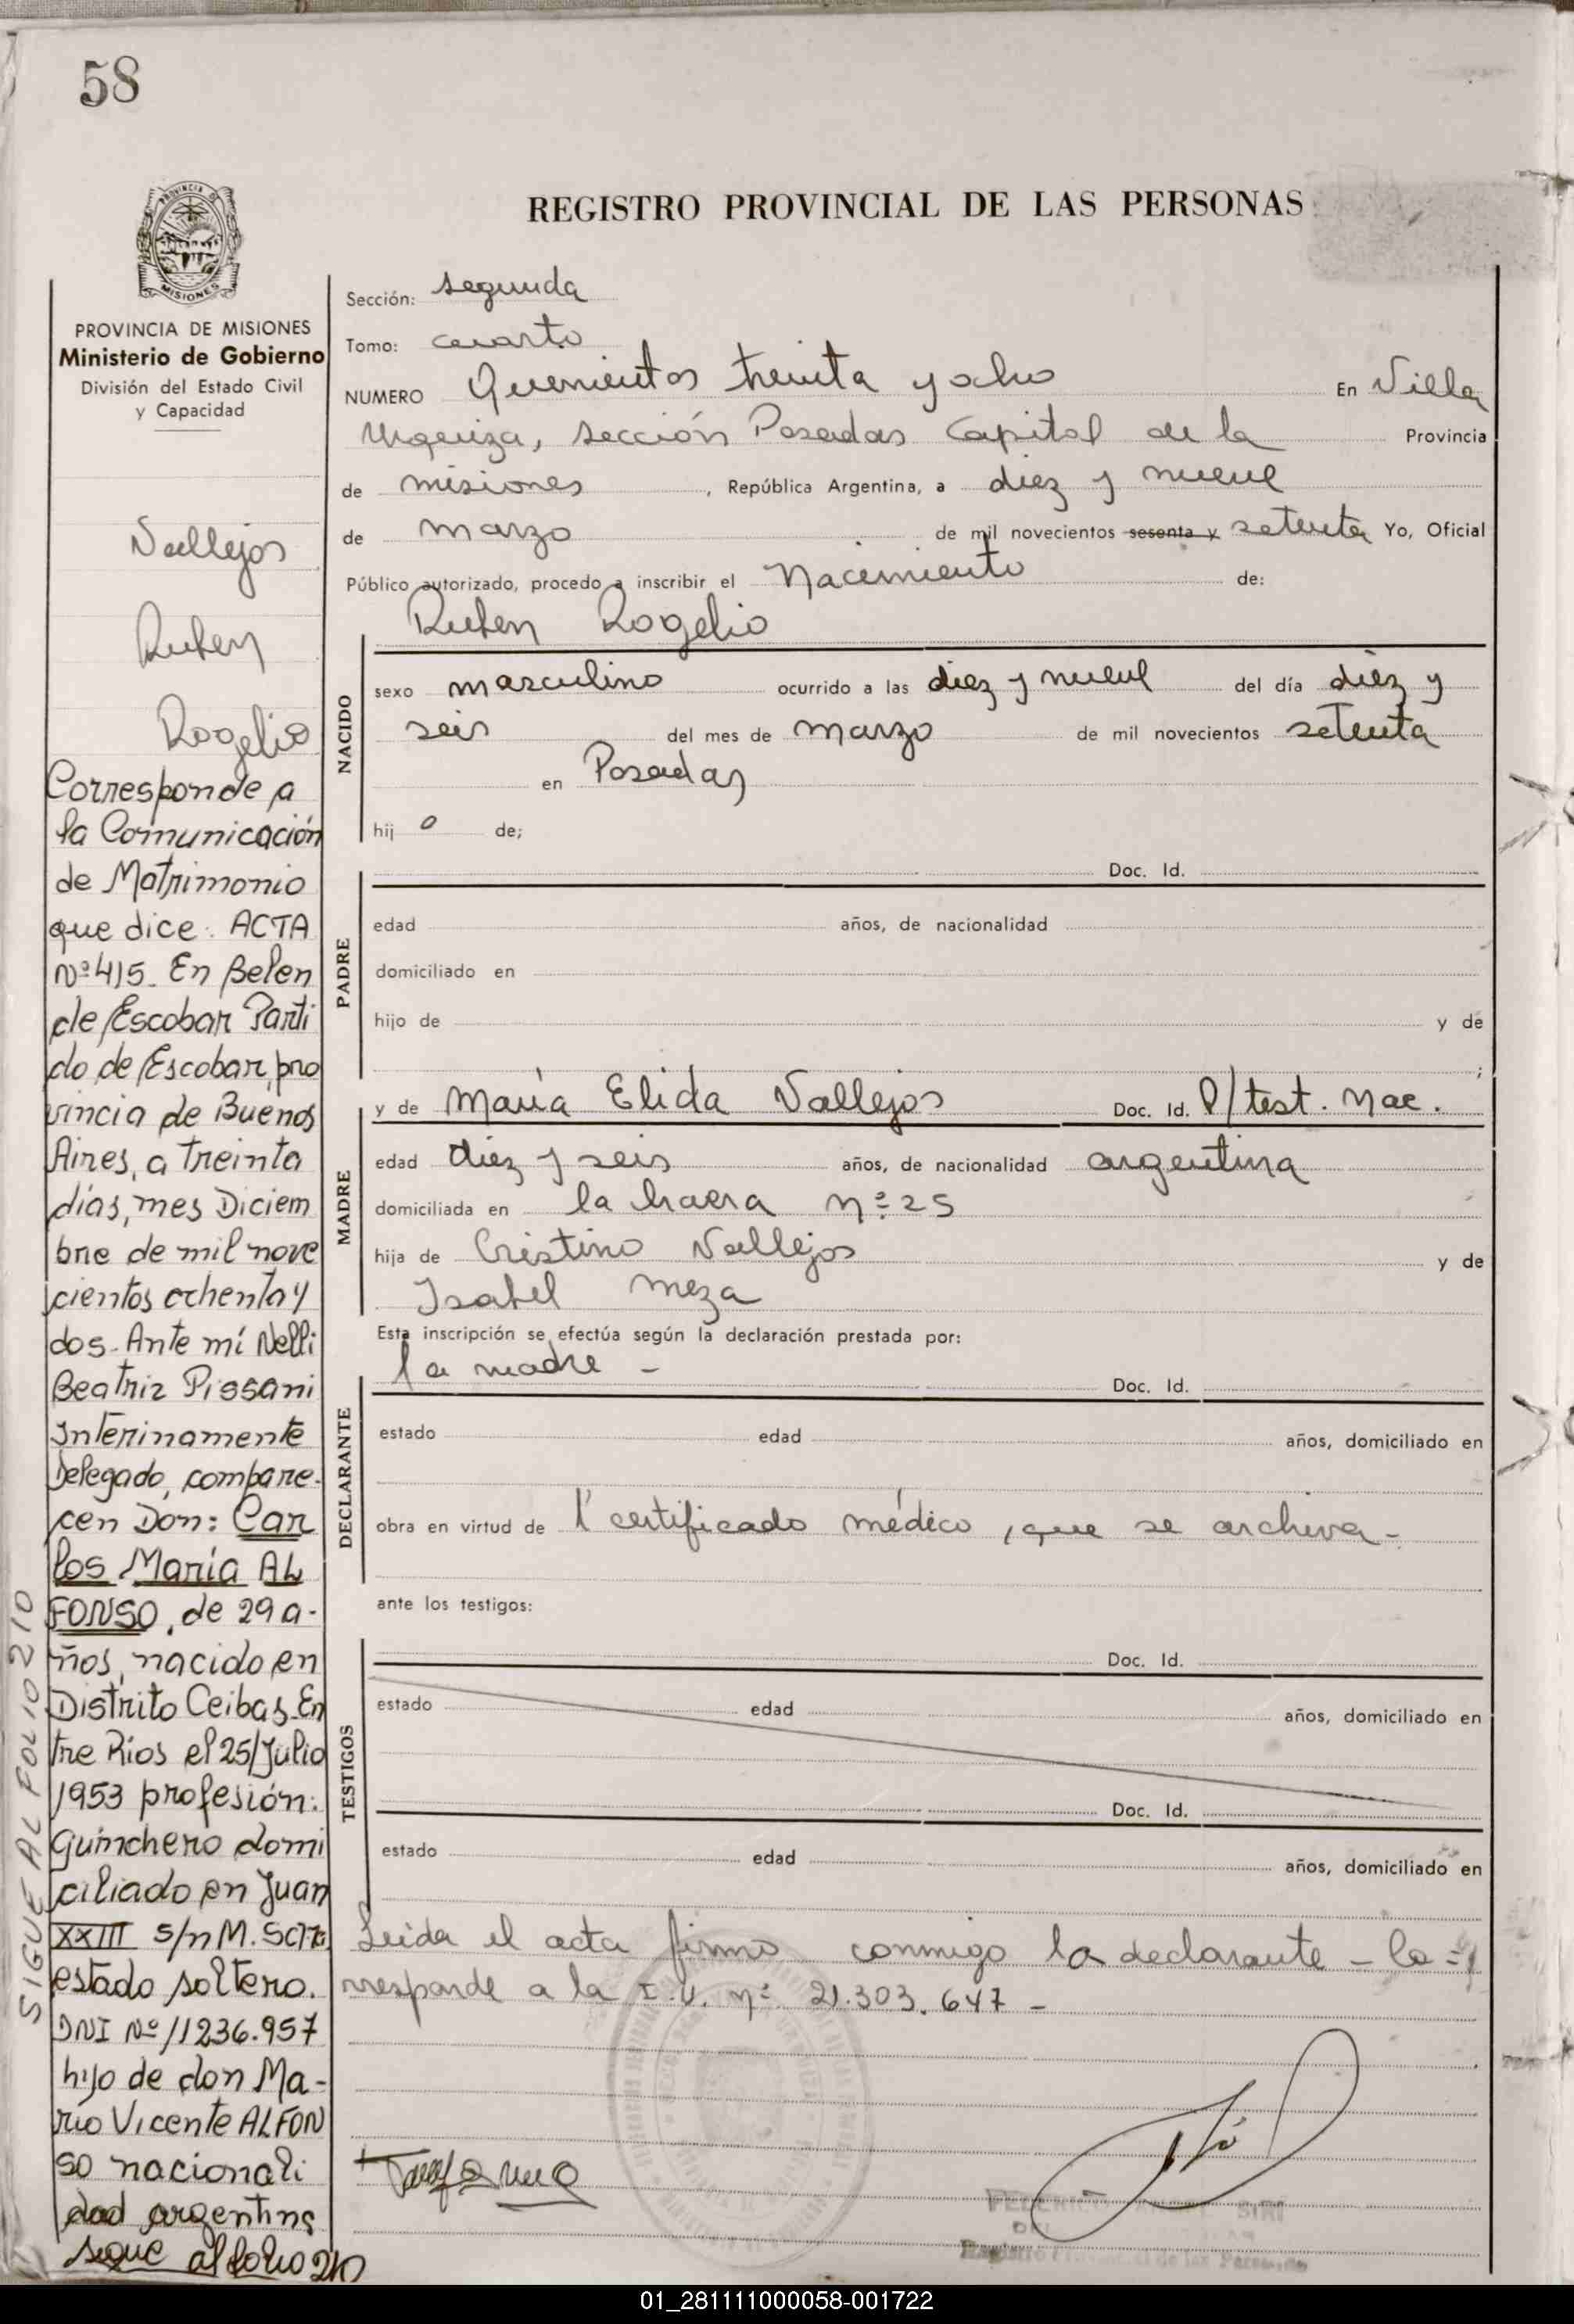 58
REGISTRO PROVINCIAL DE LAS PERSONAS
PROVINCIA DE
MISIONES
PROVINCIA DE MISIONES
Ministerio de Gobierno
División del Estado Civil
y Capacidad
Vallejos
Ruben
Rogelio
Corresponde a
la Comunicación
de Matrimonio
que dice: ACTA
Nº 415. En Belen
de Escobar Parti
do de Escobar, pro
vincia de Buenos
Aires, a treinta
días, mes Diciem
bre de mil nove
cientos ochenta y
dos. Ante mí Nelli
Beatriz Pissani
Interinamente
Delegado, compare-
cen Don: Car
los María AL
FONSO, de 29 a-
ños, nacido en
Distrito Ceibas. En
tre Ríos el 25/Julio
1953 profesión:
Guinchero domi
ciliado en Juan
XXIII s/n M. SCH
estado soltero.
DNI Nº 11236.957
hijo de don Ma-
rio Vicente ALFON
so nacionali
dad argentina
sigue al folio 210
SIGUE AL FOLIO 210
Sección: segunda
Tomo: cuarto
NUMERO Quinientos treinta y ocho En Villa
Urquiza, sección Posadas Capital de la Provincia
de misiones, República Argentina, a diez y nueve
de marzo de mil novecientos sesenta y setenta Yo, Oficial
Público autorizado, procedo a inscribir el Nacimiento de:
Ruben Rogelio
NACIDO
sexo masculino ocurrido a las diez y nueve del día diez y
seis del mes de marzo de mil novecientos setenta
en Posadas
hij o de;
Doc. Id.
PADRE
edad años, de nacionalidad
domiciliado en
hijo de y de
;
MADRE
y de María Elida Vallejos Doc. Id. P/test. Nac.
edad diez y seis años, de nacionalidad argentina
domiciliada en la nº 25
hija de Cristino Vallejos y de
Isabel Meza
Esta inscripción se efectúa según la declaración prestada por:
la madre -
Doc. Id.
DECLARANTE
estado edad años, domiciliado en
obra en virtud de 1 certificado médico, que se archiva -
ante los testigos:
Doc. Id.
TESTIGOS
estado edad años, domiciliado en
Doc. Id.
estado edad años, domiciliado en
Leida el acta firma conmigo la declarante - Co=
rresponde a la nº 21.303.647 -
SIRI
01_281111000058-001722